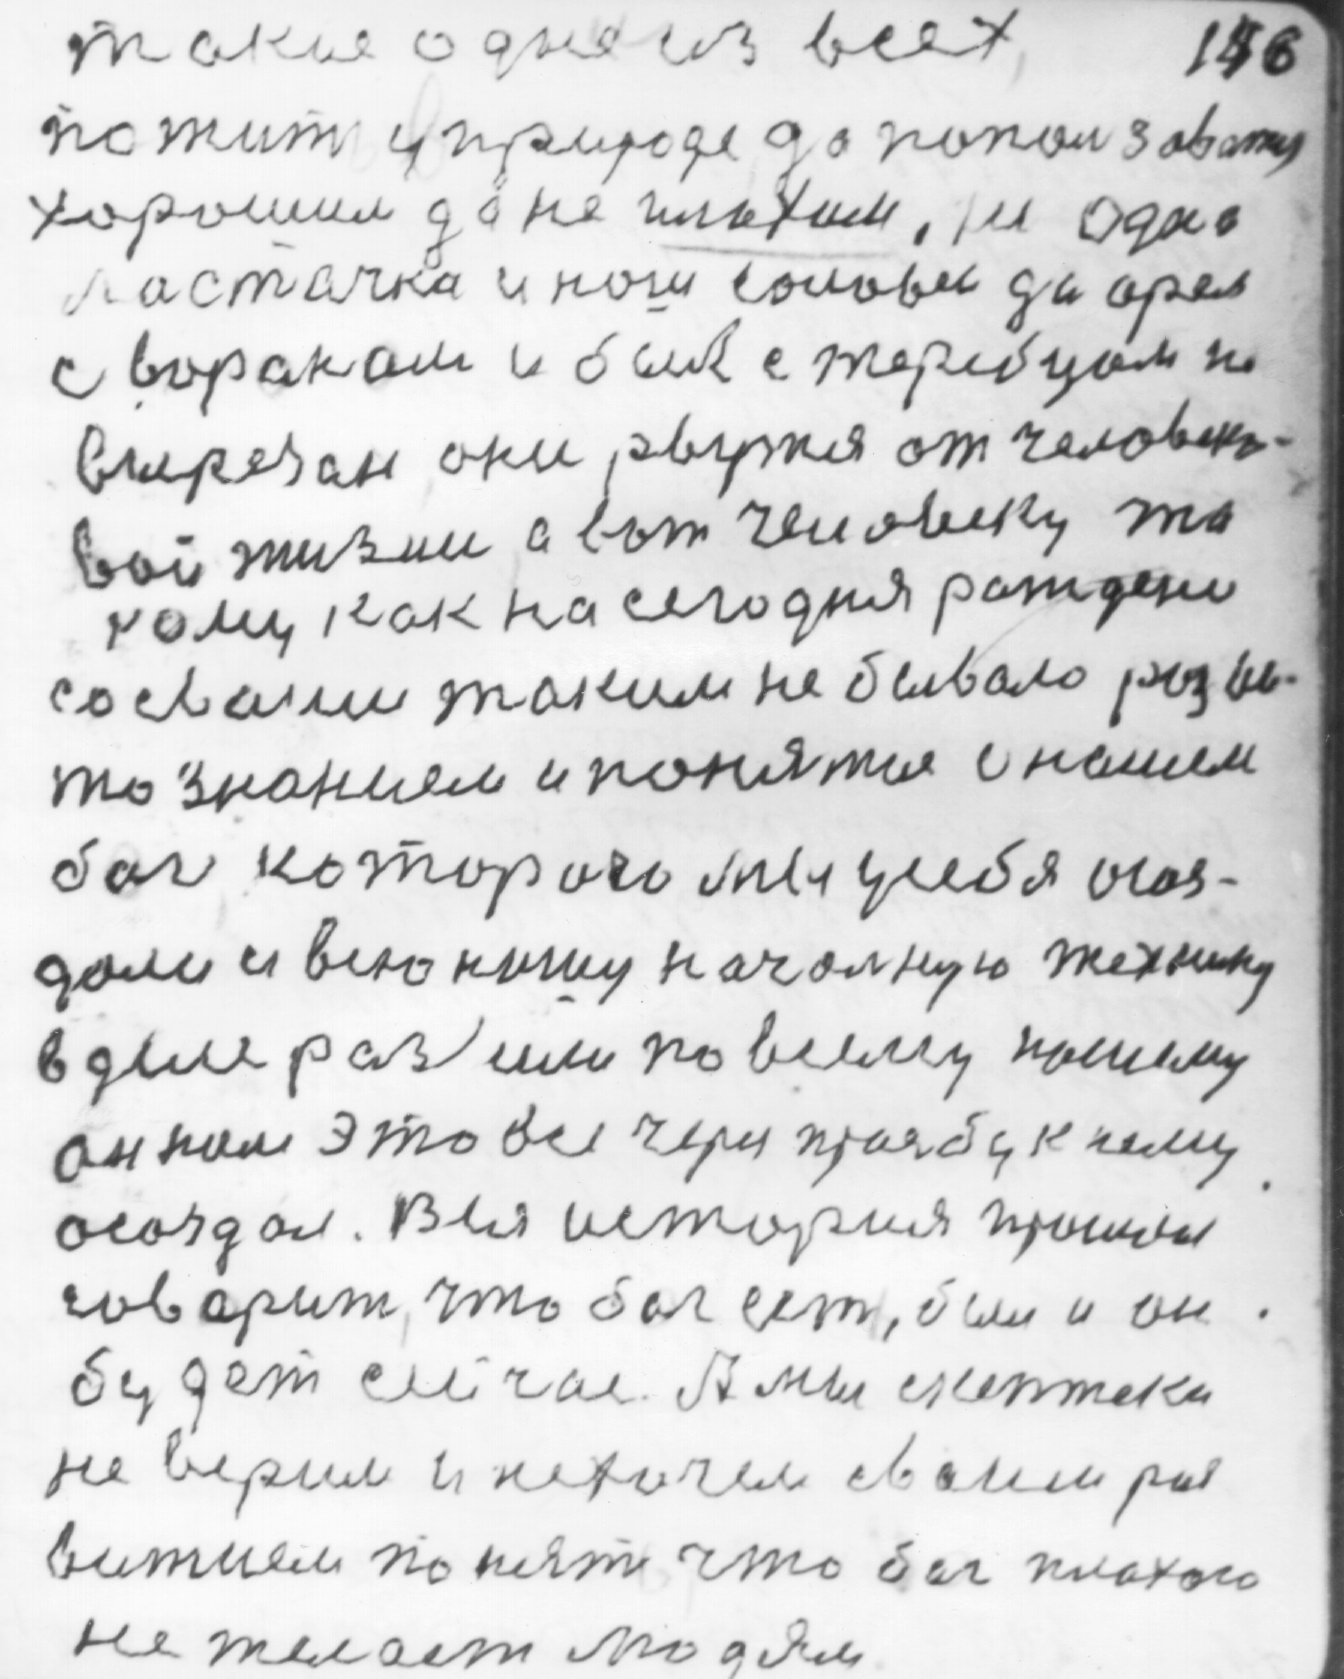 такие одне из всех, 156
пожит у природе да попользоватся
хорошим да не плохим, ни одна
ластачка и наш соловей да орел
с вораном и бык с жеребцом не
они рвутся от человеко-
вой жизни а вот человеку та
кому как на сегодня рождено
со своими таким не бывало розви-
то знанием и понятие о нашем
бог которого мы у себя осоз-
дали и всю нашу началную технику
в деле раз или по всему нашему
он нам это все через прозбу к нему
осоздал. Вся история прошлая
говорит, что бог ест, был и он
будет сейчас. А мы скептеки
не верим и не хочем своим раз
витием понят что бог плохого
не желает людям